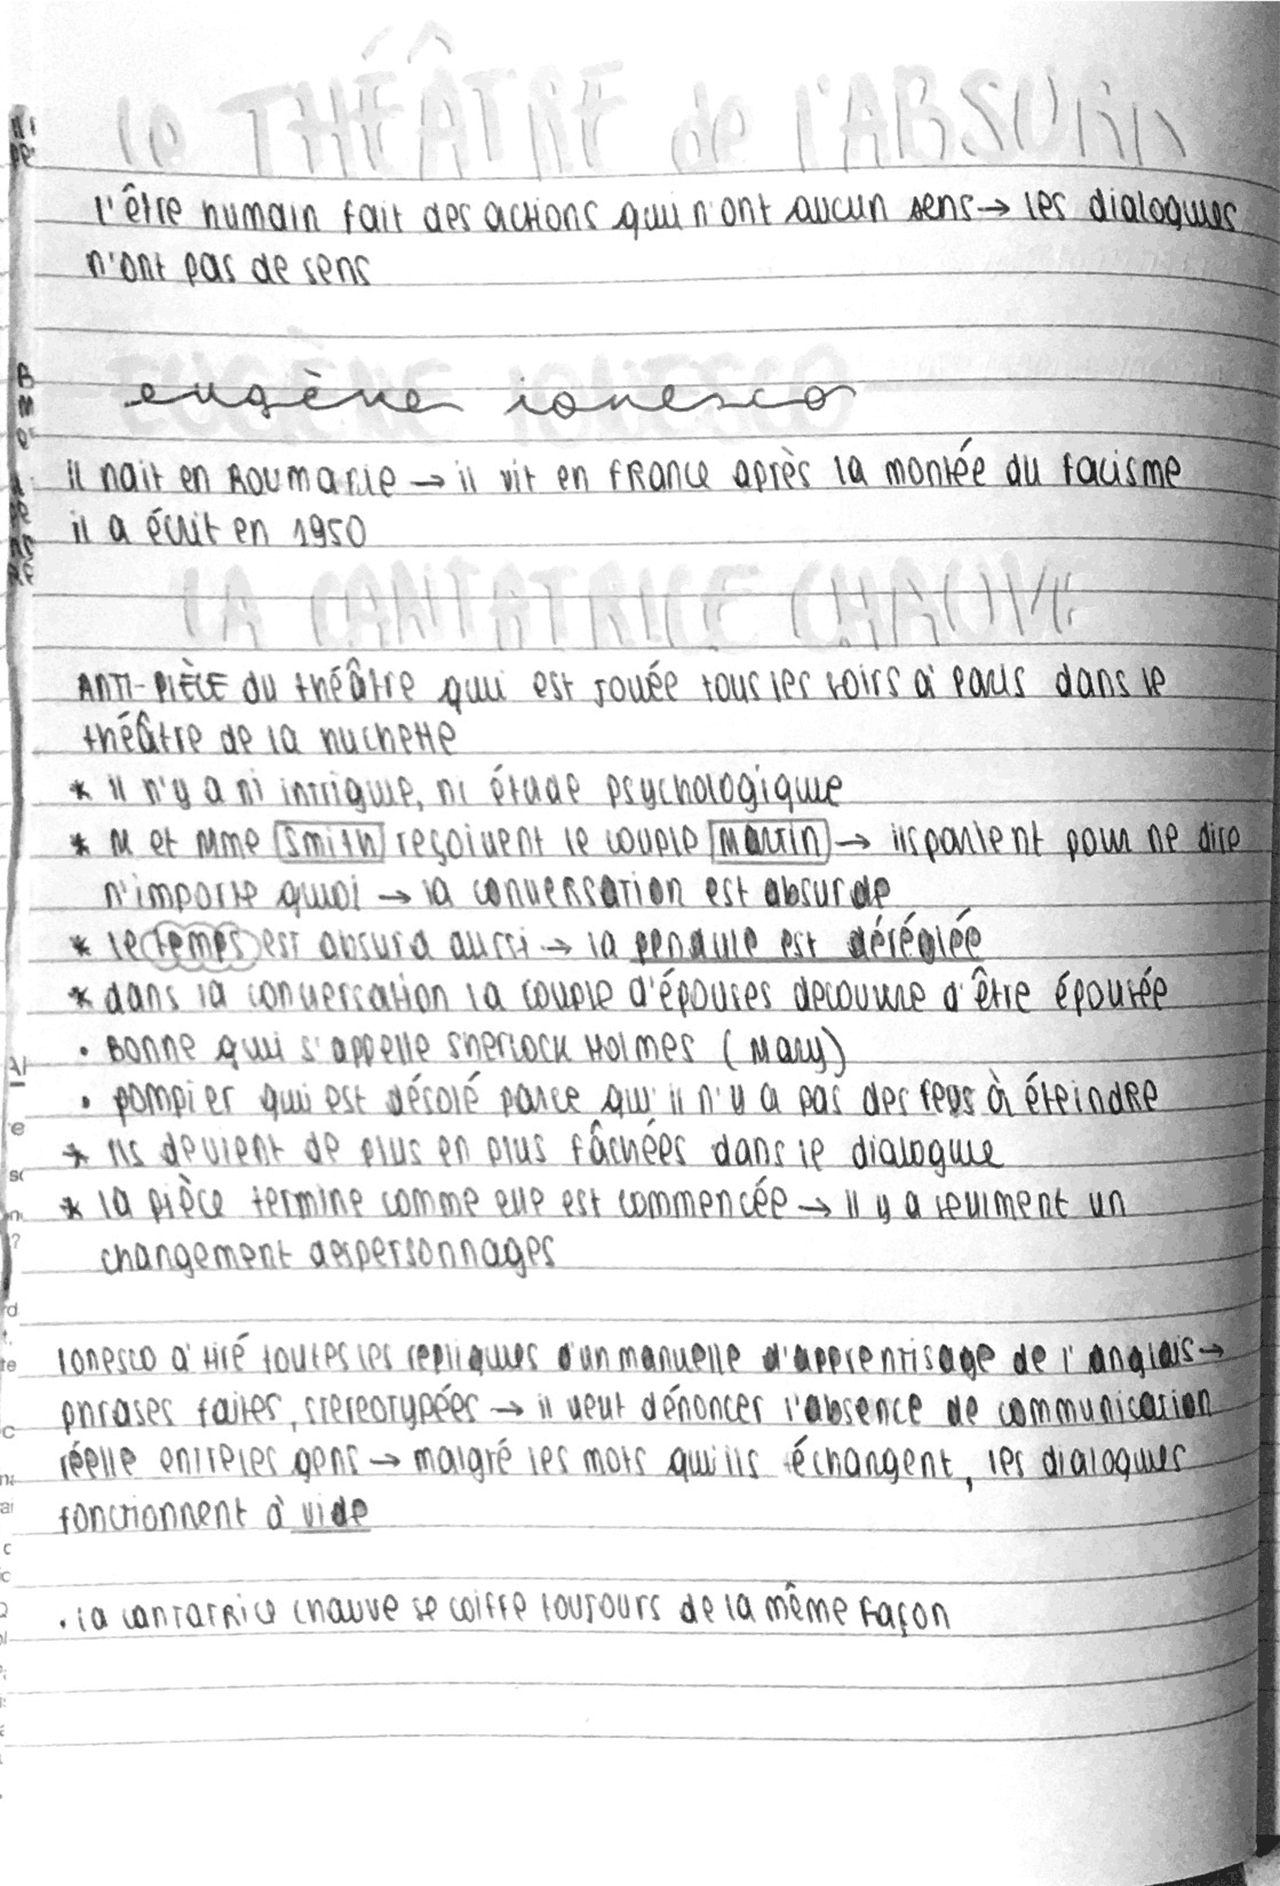 le THÉÂTRE de l'ABSURD
l'être humain fait des actions qui n'ont aucun sens → les dialogues
n'ont pas de sens
EUGÈNE IONESCO
eugène ionesco
il nait en Roumanie → il vit en FRANCE après la montée du facisme
il a écrit en 1950
LA CANTATRICE CHAUVE
ANTI-PIÈCE du théâtre qui est jouée tous les soirs à Paris dans le
théâtre de la huchette
* il n'y a ni intrigue, ni étude psychologique
* M et Mme Smith reçoivent le couple Martin → ils parlent pour ne dire
n'importe quoi → la conversation est absurde
* le temps est absurd aussi → la pendule est déréglée
* dans la conversation la couple d'épouses decouvre d'être épousée
• Bonne qui s'appelle Sherlock Holmes (Mary)
• pompier qui est désolé parce qu'il n'y a pas des feus à éteindre
* ils devient de plus en plus fâchées dans le dialogue
* la pièce termine comme elle est commencée → il y a seulment un
changement des personnages
Ionesco a tiré toutes les repliques d'un manuelle d'apprentisage de l'anglais →
phrases faites, stereotypées → il veut dénoncer l'absence de communication
réelle entre les gens → malgré les mots qu'ils échangent, les dialogues
fonctionnent à vide
• la cantatrice chauve se coiffe toujours de la même façon